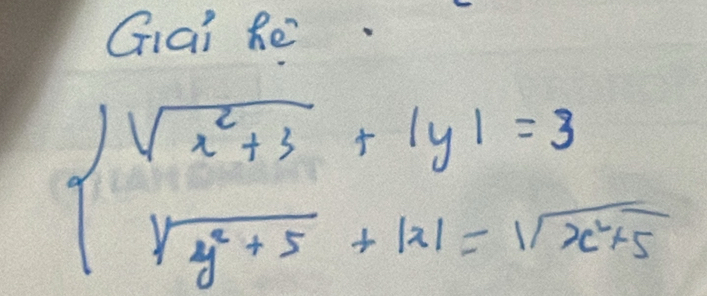 Giải hệ .
√(x²+3) + |y| = 3
√(y²+5) + |x| = √(x²+5)